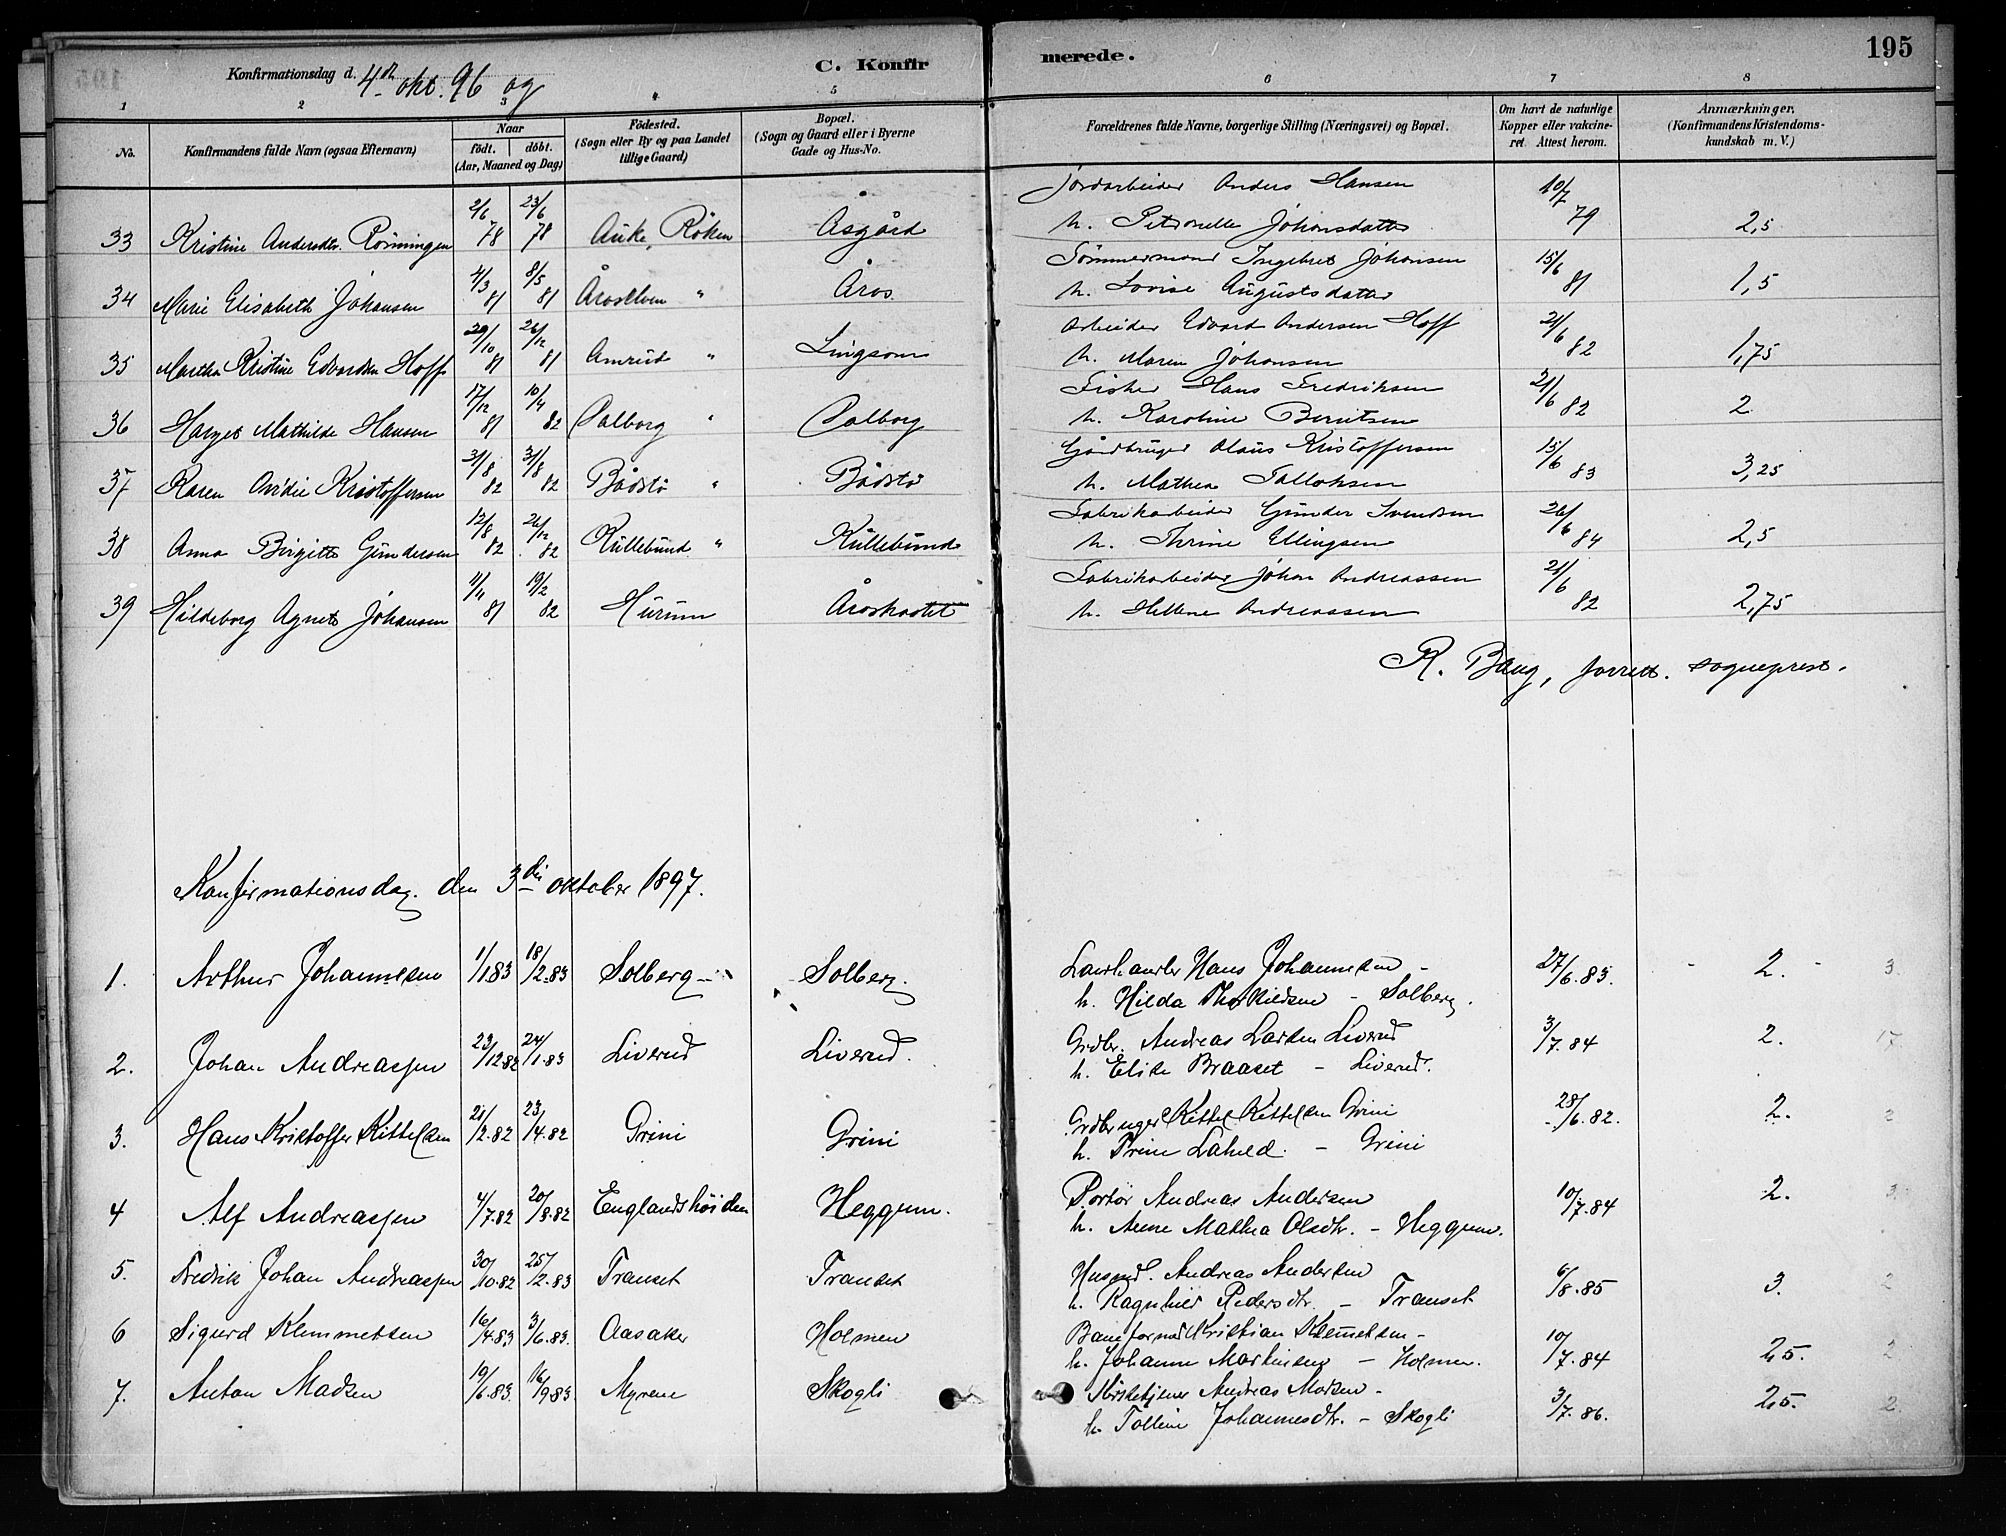 Konfirmationsdag d. 4de okt. 96 og
C. Konfirmerede.
195
1 2 3 4 5 6 7 8
No. Konfirmandens fulde Navn (ogsaa Efternavn) Naar födt. döbt. (Aar, Maaned og Dag) Födested. (Sogn eller By og paa Landet tillige Gaard) Bopæl. (Sogn og Gaard eller i Byerne Gade og Hus-No. Forældrenes fulde Navne, borgerlige Stilling (Næringsvei) og Bopæl. Om havt de naturlige Kopper eller vakcineret. Attest herom. Anmærkninger. (Konfirmandens Kristendomskundskab m. V.)
Jordarbeider Anders Hansen
33 Kristine Andersdtr. Rönningen 2/6 78 23/6 78 Auke, Röken Åsgård h. Petronelle Johansdatter 10/7 79 2,5
Tömmermand Ingebret Johansen
34 Marie Elisabeth Johansen 4/3 81 8/5 81 Åroselven " Åros h. Lovise Augustsdatter 15/6 81 1,5
Arbeider Edvard Andersen Hoff
35 Martha Kristine Edvardsen Hoff 29/10 81 26/12 81 Amrud " Lingsom h. Maren Johansen 21/6 82 1,75
Fisker Hans Fredriksen
36 Margit Mathilde Hansen 17/12 81 10/4 82 Palborg " Palborg h. Karoline Berntsen 21/6 82 2
Gårdbruger Olaus Kristoffersen
37 Karen Ovidie Kristoffersen 31/8 82 31/8 82 Bådstö " Bådstö h. Mathea Tolloksen 15/6 83 3,25
Fabrikarbeider Gunder Svendsen
38 Anna Birgitte Gundersen 12/8 82 26/12 82 Kullebund " Kullebund h. Thrine Ellingsen 26/6 84 2,5
Fabrikarbeider Johan Andreassen
39 Hildeborg Agnete Johansen 11/11 81 19/2 82 Hurum Åroskastet h. Hellene Andreassen 21/6 82 2,75
R. Bang, forrett. sogneprest.
Konfirmationsdag. den 3die oktober 1897.
1. Arthur Johannesen 1/1.83 18/2.83 Solberg Solberg. Landhandler Hans Johannesen - 27/6.83. 2. 3.
h. Hilda Thorkildsen - Solberg.
2. Johan Andreassen 23/12.82 24/1.83 Liverud Liverud. Grdbr. Andreas Larsen Liverud 3/7.84 2. 17
h. Elise Braaset - Liverud.
3. Hans Kristoffer Kittelsen 21/2.82 23/4.82 Grini Grini Grdbruger Kittel Kittelsen Grini 28/6.82. 2. 2
h. Trine Lahed. - Grini
4 Alf Andreassen 4/7.82 20/8.82 Englandshöiden Heggum. Portör Andreas Andersen 10/7.84 2. 3.
h. Anne Mathea Olsdtr. - Heggum.
5. Fredrik Johan Andreassen 30/10.82 25/2.83 Transet Transet Husmd. Andreas Andersen 6/8.85 3. 2
h. Ragnhild Pedersdtr. - Transet
6 Sigurd Klemmetsen 16/4.83 3/6.83. Aasaker Holmen Baneformd Kristian Klemetsen - 10/7.84 2,5. 2
h. Johanne Martinsen - Holmen.
7. Anton Madsen 19/6.83. 16/9.83. Myrene Skogli Kirketjener Andreas Madsen - 3/7.86. 2,5. 2.
h. Tolline Johannesdtr. - Skogli